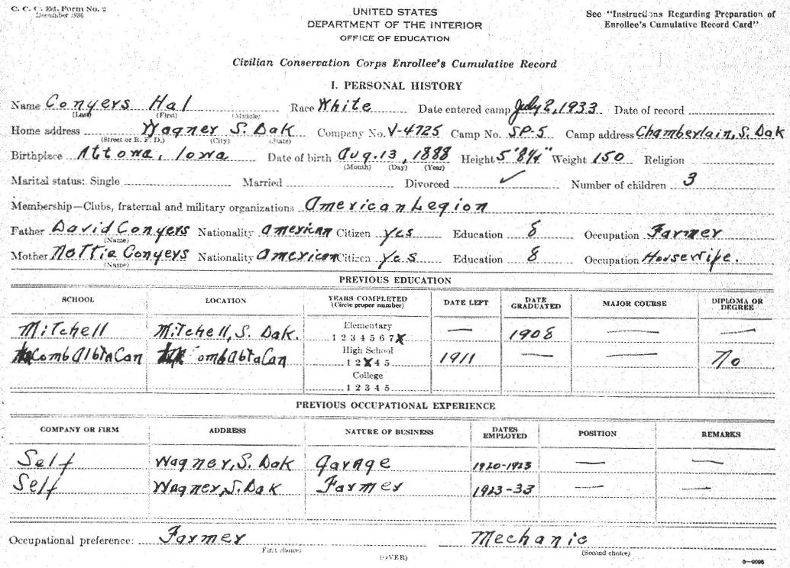 C. C. C. Ed. Form No. 2
December 1936
UNITED STATES
DEPARTMENT OF THE INTERIOR
OFFICE OF EDUCATION
See "Instructions Regarding Preparation of
Enrollee's Cumulative Record Card"
Civilian Conservation Corps Enrollee's Cumulative Record
I. PERSONAL HISTORY
Name Conyers Hal Race White Date entered camp July 2, 1933 Date of record
(Last) (First) (Middle)
Home address Wagner S. Dak Company No. V-4725 Camp No. SP-5 Camp address Chamberlain, S. Dak
(Street or R. F. D.) (City) (State)
Birthplace Attowa, Iowa Date of birth Aug. 13, 1888 Height 5' 8¼" Weight 150 Religion
(Month) (Day) (Year)
Marital status: Single Married Divorced ✓ Number of children 3
Membership—Clubs, fraternal and military organizations American Legion
Father David Conyers Nationality American Citizen yes Education 8 Occupation Farmer
(Name)
Mother Nottie Conyers Nationality American Citizen yes Education 8 Occupation Housewife.
(Name)
PREVIOUS EDUCATION
SCHOOL LOCATION YEARS COMPLETED DATE LEFT DATE GRADUATED MAJOR COURSE DIPLOMA OR DEGREE
(Circle proper number)
Elementary
Mitchell Mitchell, S. Dak. 1 2 3 4 5 6 7 — 1908 — —
High School
1 2 4 5 1911 — — No
College
1 2 3 4 5
PREVIOUS OCCUPATIONAL EXPERIENCE
COMPANY OR FIRM ADDRESS NATURE OF BUSINESS DATES EMPLOYED POSITION REMARKS
Self Wagner, S. Dak Garage 1920-1923 — —
Self Wagner, S. Dak Farmer 1923-33 — —
Occupational preference: Farmer Mechanic
(First choice) (Second choice)
(OVER)